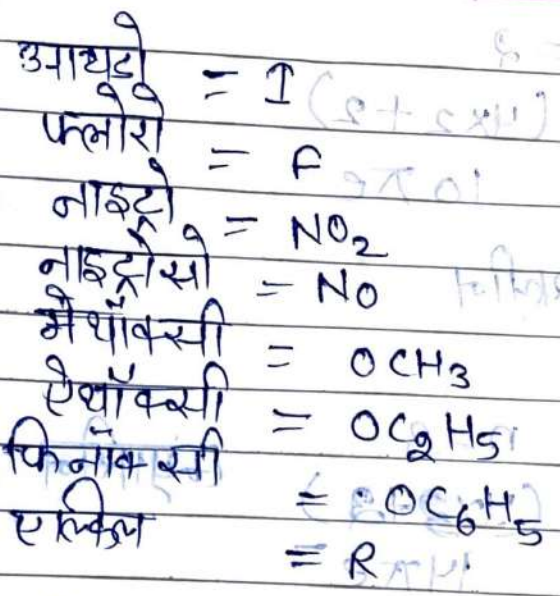 आयडो = I
फ्लोरो = F
नाइट्रो = NO₂
नाइट्रोसो = NO
मेथॉक्सी = OCH₃
ऐथॉक्सी = OC₂H₅
फिनॉक्सी = OC₆H₅
एल्किल = R